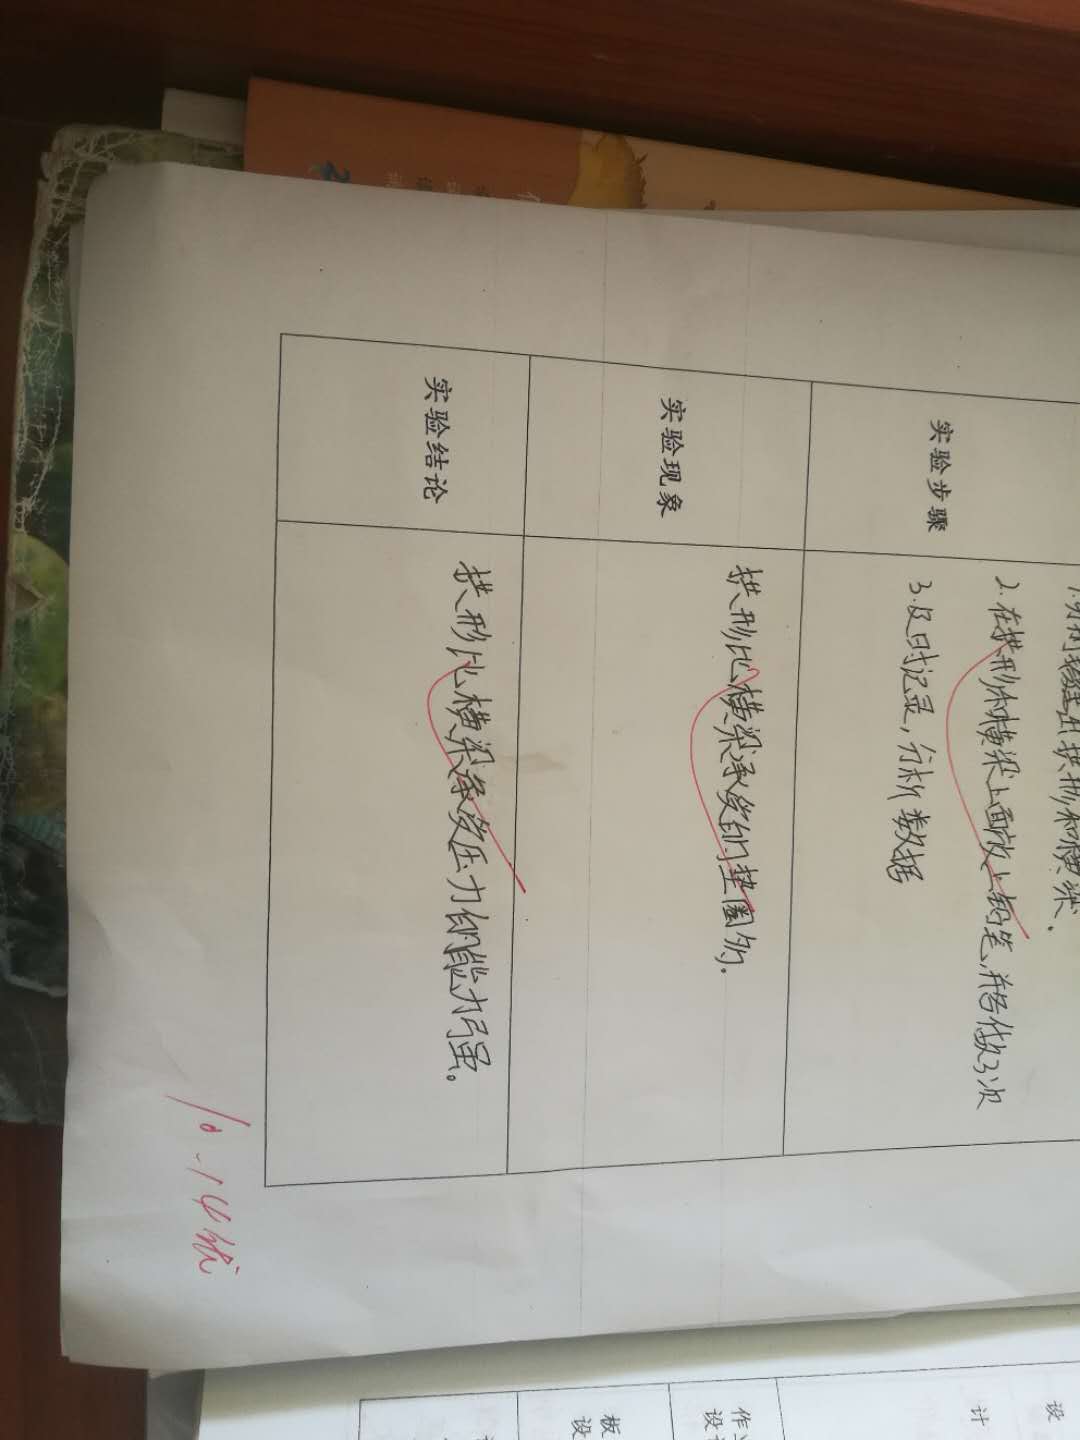 实验步骤
2.在拱形和横梁上面放上铅笔,并各做3次
3.及时记录,分析数据
实验现象
拱形比横梁承受的垫圈多.
实验结论
拱形比横梁承受压力的能力强。
10.14优
设
计
作业
设计
板
设